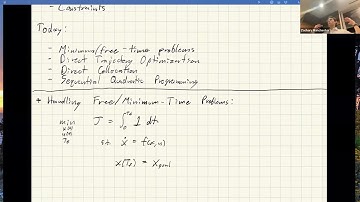 - Constraints
Today:
- Minimum/free-time problems
- Direct Trajectory Optimization
- Direct Collocation
- Sequential Quadratic Programming
* Handling Free/Minimum-Time Problems:
min x(t) u(t) T_f J = ∫_0^{T_f} 1 dt
s.t. ẋ = f(x,u)
x(T_f) = x_goal
Zachary Manchester